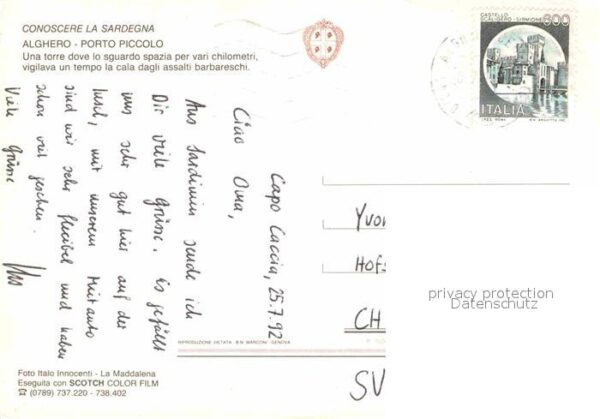 CONOSCERE LA SARDEGNA
ALGHERO - PORTO PICCOLO
Una torre dove lo sguardo spazia per vari chilometri,
vigilava un tempo la cala dagli assalti barbareschi.
CASTELLO
SCALIGERO - SIRMIONE
600
ITALIA
Capo Caccia, 25.7.92
Ciao Oma,
Aus Sardinien sende ich
Dir viele Grüsse. Es gefällt
uns sehr gut hier auf der
Insel, mit unserem Mietauto
sind wir sehr flexibel und haben
schon viel gesehen.
Viele Grüsse
Yvon
Hofs
CH
SV
privacy protection
Datenschutz
RIPRODUZIONE VIETATA - B.N. MARCONI - GENOVA
Foto Italo Innocenti - La Maddalena
Eseguita con SCOTCH COLOR FILM
☎ (0789) 737.220 - 738.402